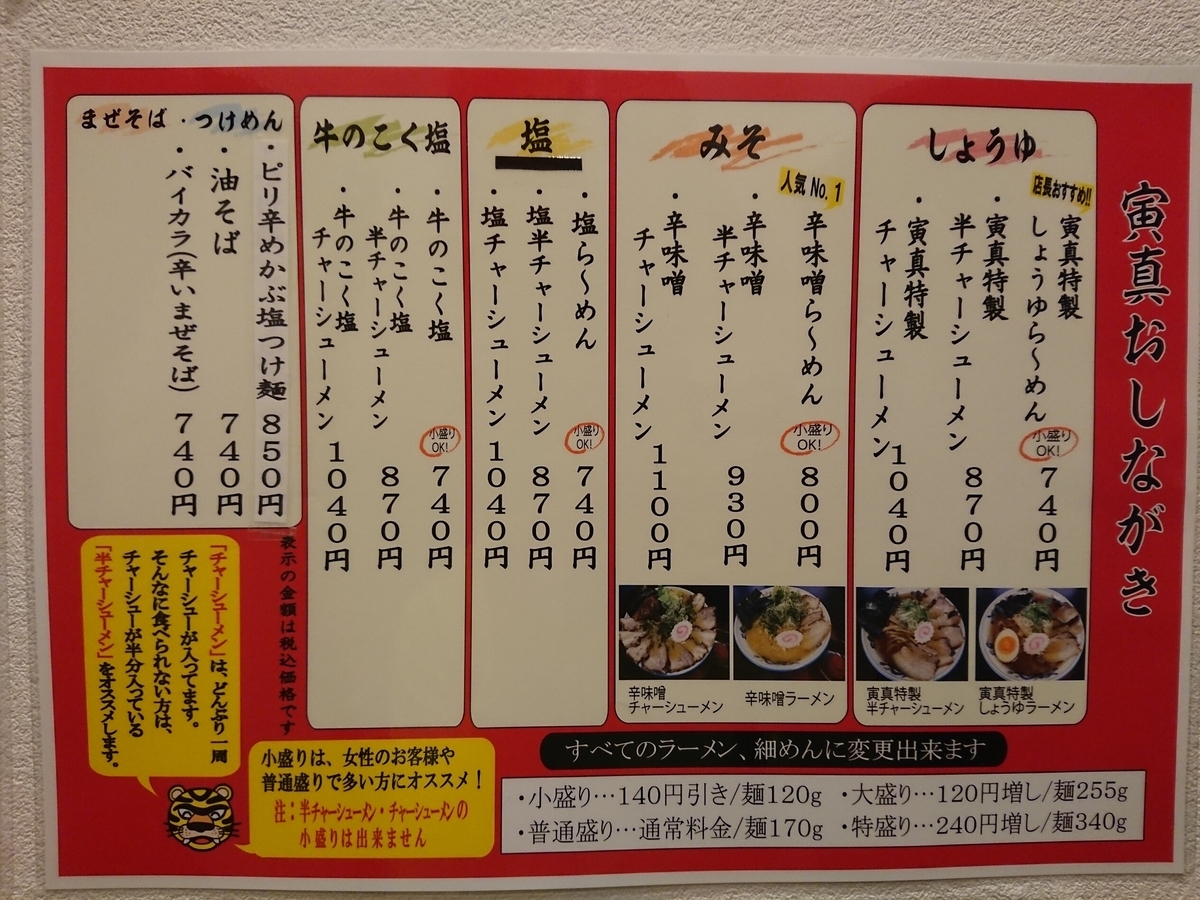 寅真おしながき
しょうゆ
店長おすすめ!!
寅真特製
しょうゆら〜めん
小盛り
OK!
740円
・寅真特製
半チャーシューメン
870円
・寅真特製
チャーシューメン
1040円
寅真特製
半チャーシューメン
寅真特製
しょうゆラーメン
みそ
人気 No.1
辛味噌ら〜めん
小盛り
OK!
800円
・辛味噌
半チャーシューメン
930円
・辛味噌
チャーシューメン
1100円
辛味噌
チャーシューメン
辛味噌ラーメン
塩
・塩ら〜めん
小盛り
OK!
740円
・塩半チャーシューメン
870円
・塩チャーシューメン
1040円
牛のこく塩
・牛のこく塩
小盛り
OK!
740円
・牛のこく塩
半チャーシューメン
870円
・牛のこく塩
チャーシューメン
1040円
まぜそば・つけめん
・ピリ辛めかぶ塩つけ麺 850円
・油そば 740円
・バイカラ(辛いまぜそば) 740円
表示の金額は税込価格です
「チャーシューメン」は、どんぶり一周
チャーシューが入ってます。
そんなに食べられない方は、
チャーシューが半分入っている
「半チャーシューメン」をオススメします。
小盛りは、女性のお客様や
普通盛りで多い方にオススメ！
注：半チャーシューメン・チャーシューメンの
小盛りは出来ません
すべてのラーメン、細めんに変更出来ます
・小盛り…140円引き/麺120g
・大盛り…120円増し/麺255g
・普通盛り…通常料金/麺170g
・特盛り…240円増し/麺340g